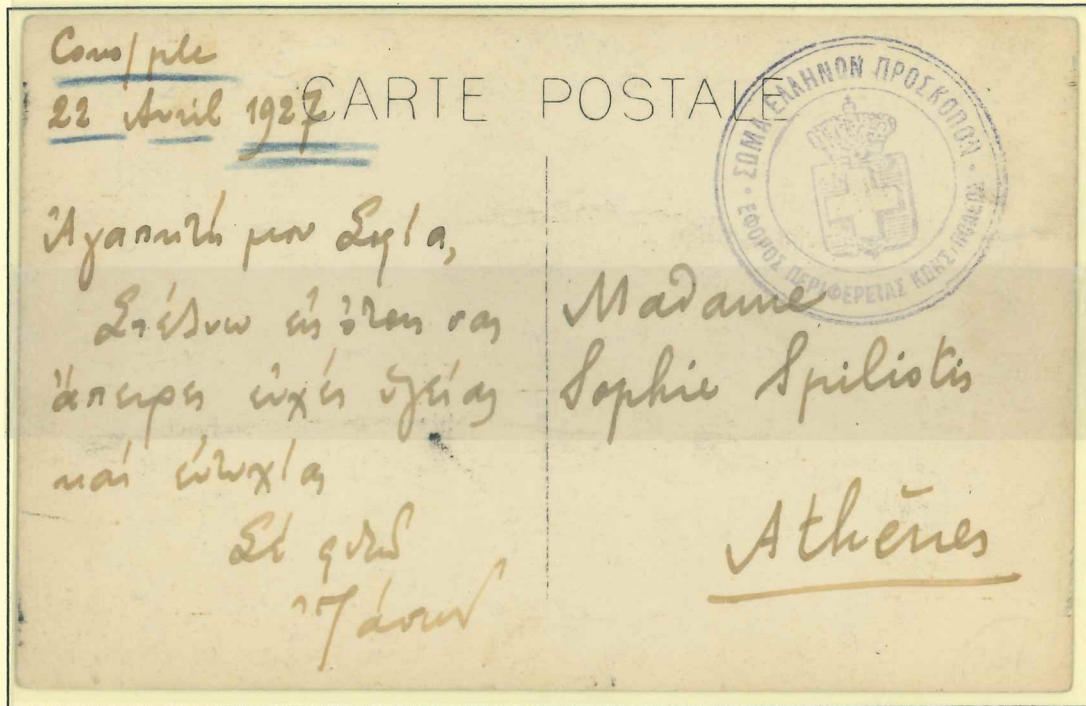 Cons/ple
22 Avril 1927
CARTE POSTALE
ΣΩΜΑ ΕΛΛΗΝΩΝ ΠΡΟΣΚΟΠΩΝ
ΕΦΟΡΟΣ ΠΕΡΙΦΕΡΕΙΑΣ ΚΩΝΣ/ΠΟΛΕΩΣ
Ἀγαπητή μου Σοφία,
Στέλνω εἰς ὅλους σας
ἄπειρες εὐχές ὑγείας
καί εὐτυχίας
Σέ φιλῶ
Ἰάσων
Madame
Sophie Spiliotis
Athènes